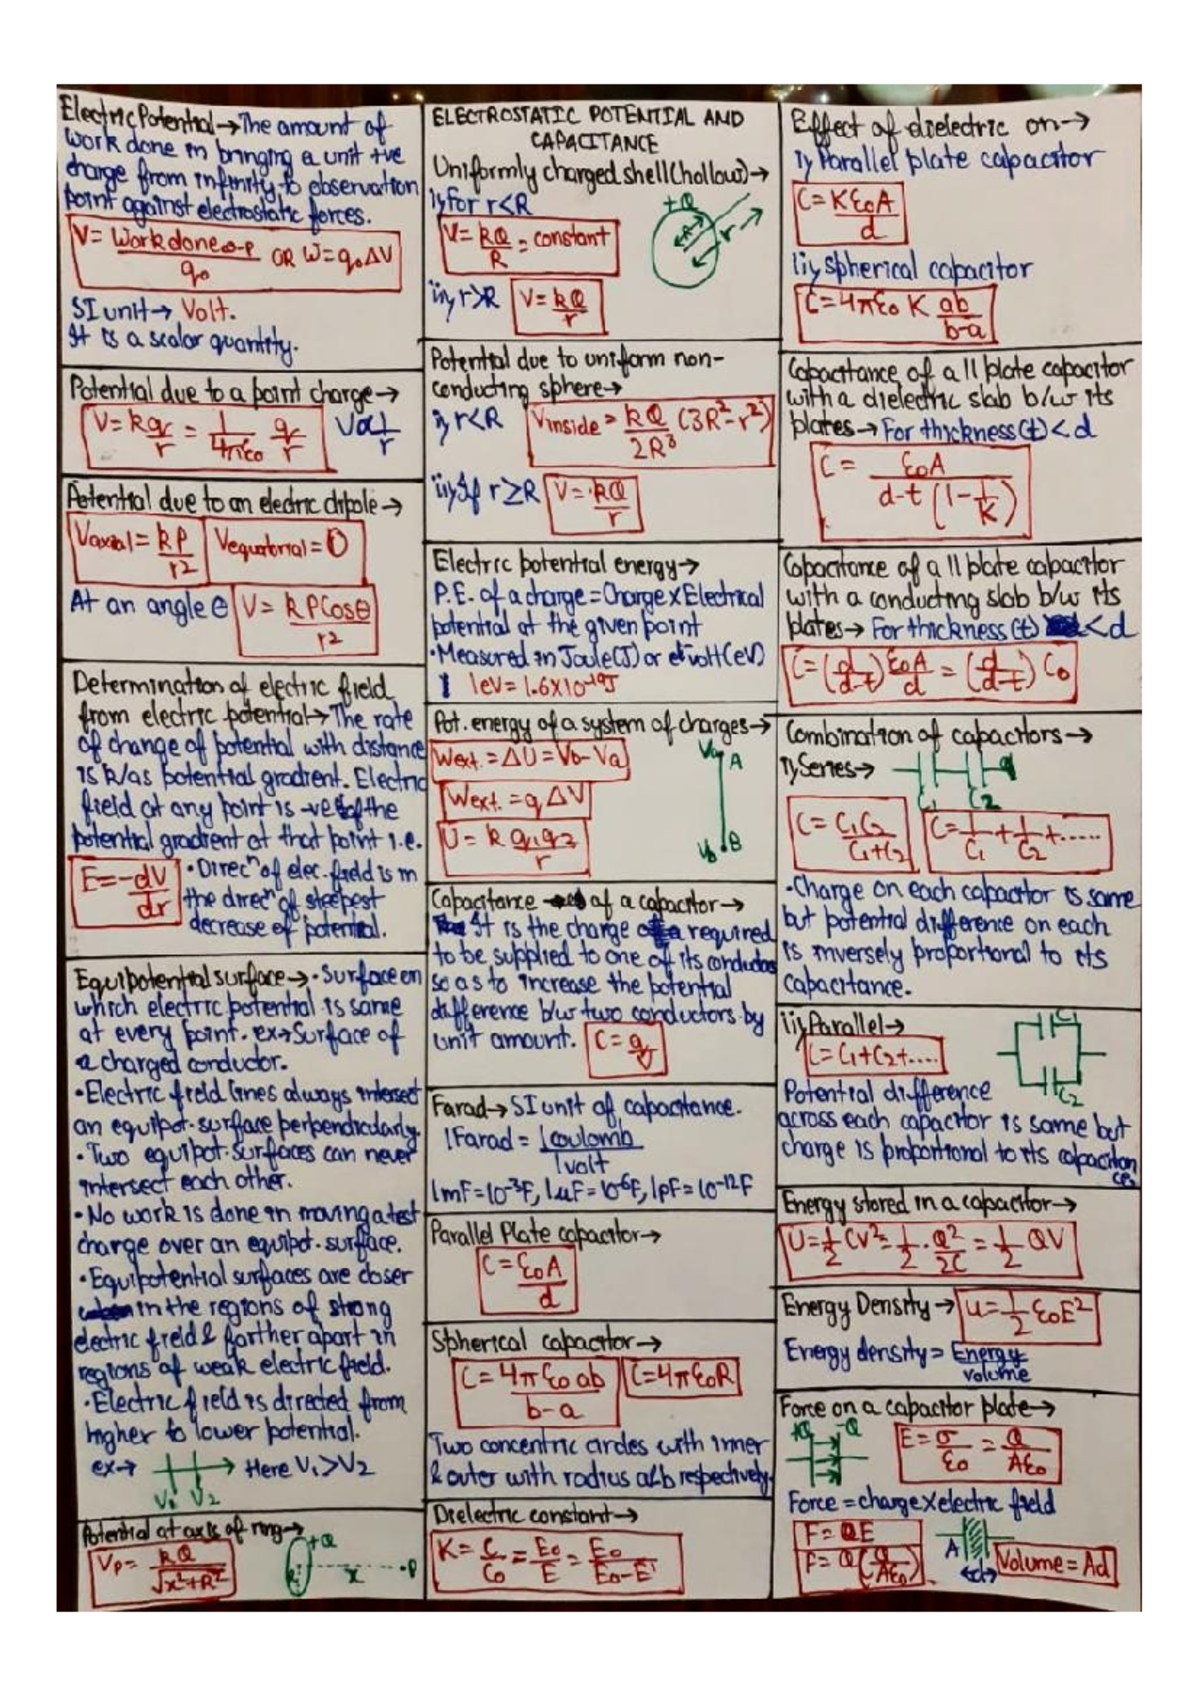 Electric Potential→The amount of
work done in bringing a unit +ve
charge from infinity to observation
point against electrostatic forces.
V = Work done∞-P / q₀ OR W = q₀ΔV
SI unit → Volt.
It is a scalar quantity.
Potential due to a point charge→
V = kq/r = 1/4πε₀ q/r V∝1/r
Potential due to an electric dipole→
Vaxial = kP/r2 Vequatorial = 0
At an angle θ V = kPCosθ/r2
Determination of electric field
from electric potential→The rate
of change of potential with distance
is k/as potential gradient. Electric
field at any point is -ve of the
potential gradient at that point i.e.
E = -dV/dr • Direcⁿ of elec. field is in
the direcⁿ of steepest
decrease of potential.
Equipotential surface→ • Surface on
which electric potential is same
at every point. ex→Surface of
a charged conductor.
• Electric field lines always intersect
an equipot. surface perpendicularly.
• Two equipot. surfaces can never
intersect each other.
• No work is done in moving a test
charge over an equipot. surface.
• Equipotential surfaces are closer
in the regions of strong
electric field & farther apart in
regions of weak electric field.
• Electric field is directed from
higher to lower potential.
ex→ Here V₁>V₂
V₁ V₂
Potential at axis of ring→
Vp = kQ/√x²+R² +Q R x •P
ELECTROSTATIC POTENTIAL AND
CAPACITANCE
Uniformly charged shell(hollow)→
i) for r<R +Q
V = kQ/R = constant R r
ii) r>R V = kQ/r
Potential due to uniform non-
conducting sphere→
i) r<R Vinside = kQ/2R³ (3R²-r²)
ii) If r≥R V = kQ/r
Electric potential energy→
P.E. of a charge = Charge×Electrical
potential at the given point
• Measured in Joule(J) or eVolt(eV)
1eV = 1.6×10⁻¹⁹J
Pot. energy of a system of charges→
Wext. = ΔU = Vb - Va Va A
Wext. = qΔV
U = k q₁q₂/r Vb B
Capacitance of a capacitor→
It is the charge required
to be supplied to one of its conductors
so as to increase the potential
difference b/w two conductors by
unit amount. C = q/V
Farad→SI unit of capacitance.
1Farad = 1coulomb/1volt
1mF=10⁻³F, 1uF=10⁻⁶F, 1pF=10⁻¹²F
Parallel Plate capacitor→
C = ε₀A/d
Spherical capacitor→
C = 4πε₀ab/b-a C=4πε₀R
Two concentric circles with inner
& outer with radius a&b respectively.
Dielectric constant→
K = C/C₀ = E₀/E = E₀/E₀-E'
Effect of dielectric on→
i) Parallel plate capacitor
C = Kε₀A/d
ii) Spherical capacitor
C = 4πε₀ K ab/b-a
Capacitance of a || plate capacitor
with a dielectric slab b/w its
plates→For thickness(t)<d
C = ε₀A/d-t(1-1/K)
Capacitance of a || plate capacitor
with a conducting slab b/w its
plates→For thickness(t) <d
C=(d/d-t)ε₀A/d = (d/d-t) C₀
Combination of capacitors→
i) Series→
C₁ C₂
C = C₁C₂/C₁+C₂ C = 1/C₁+1/C₂+.....
• Charge on each capacitor is same
but potential difference on each
is inversely proportional to its
capacitance.
ii) Parallel→ C₁
C=C₁+C₂+....
C₂
Potential difference
across each capacitor is same but
charge is proportional to its capacitan
ce.
Energy stored in a capacitor→
U=1/2 CV²=1/2 . Q²/2C = 1/2 QV
Energy Density→ u=1/2 ε₀E²
Energy density = Energy/volume
Force on a capacitor plate→
+Q -Q E = σ/ε₀ = Q/Aε₀
Force = charge×electric field
F = QE
F = Q(Q/Aε₀) A d Volume = Ad